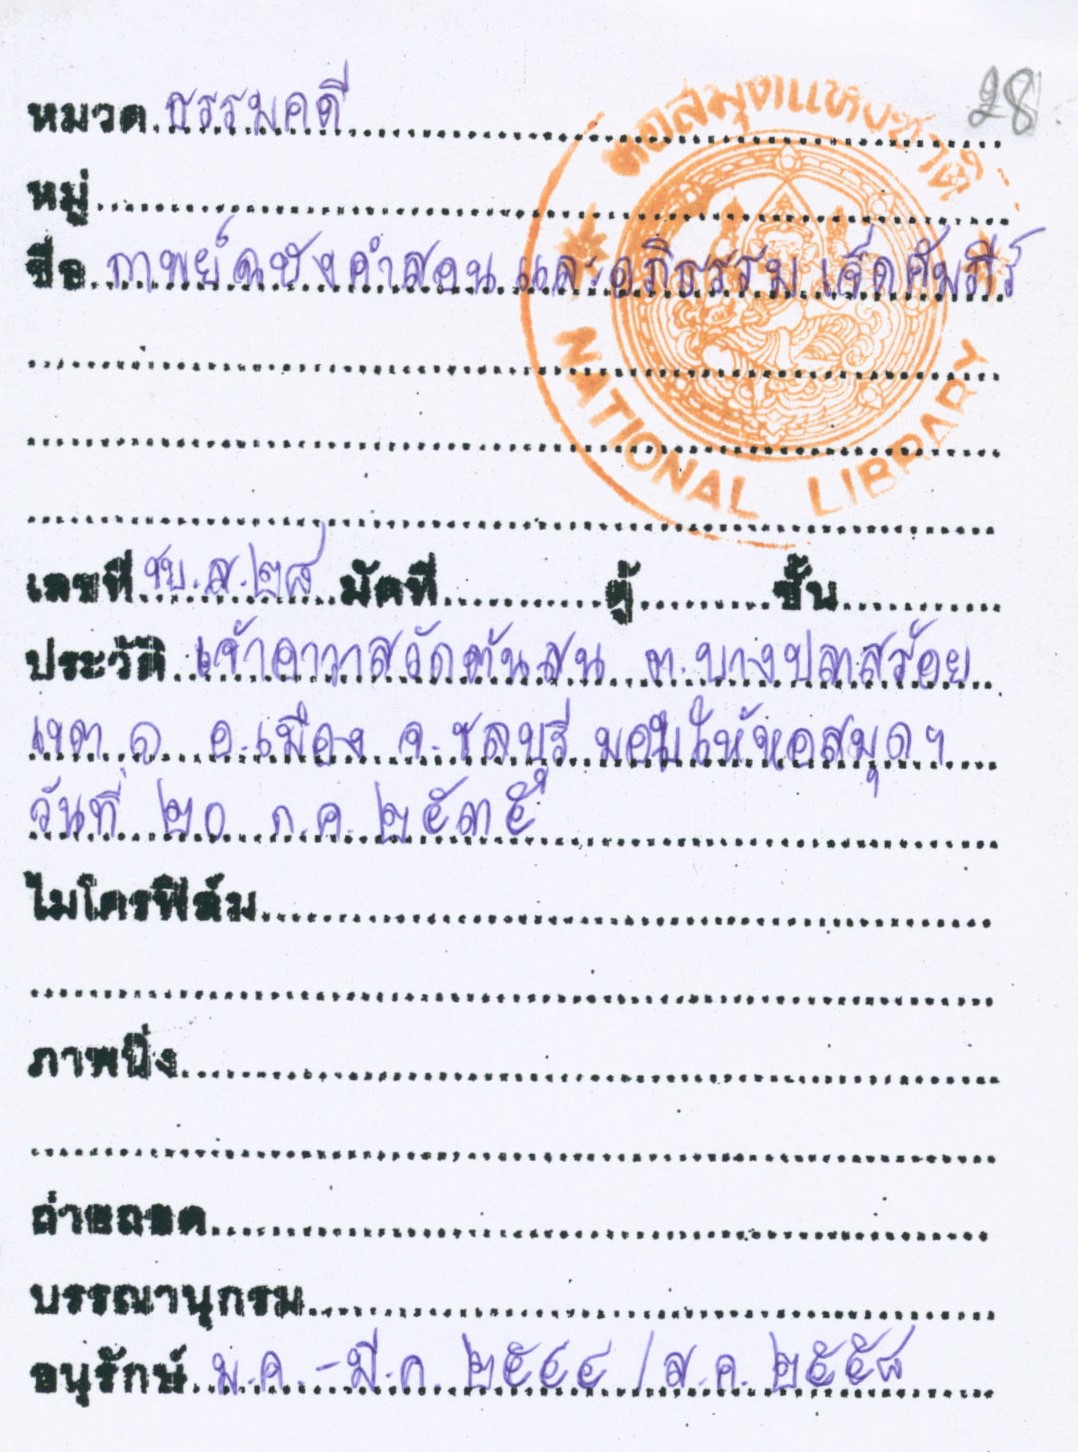 28
หอสมุดแห่งชาติ
NATIONAL LIBRARY
หมวด ธรรมคดี
หมู่
ชื่อ กาพย์ฉบังคำสอน และอภิธรรมเจ็ดคัมภีร์
เลขที่ ชบ.ส.๒๘ มัดที่ ตู้ ชั้น
ประวัติ เจ้าอาวาสวัดต้นสน ต.บางปลาสร้อย
เขต ๑ อ.เมือง จ.ชลบุรี มอบให้หอสมุดฯ
วันที่ ๒๐ ก.ค. ๒๕๓๕
ไมโครฟิล์ม
ภาพนิ่ง
ถ่ายถอด
บรรณานุกรม
อนุรักษ์ ม.ค. - มี.ค. ๒๕๔๔ / ส.ค. ๒๕๕๘